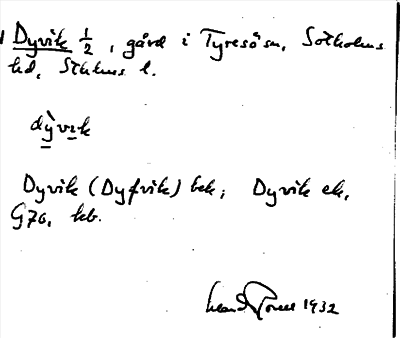 Dyvik ½, gård i Tyresö sn, Sotholms
hd, Sthlms l.
dỳvɩk
Dyvik (Dyfvik) bek; Dyvik ek,
G70, kb.
1932